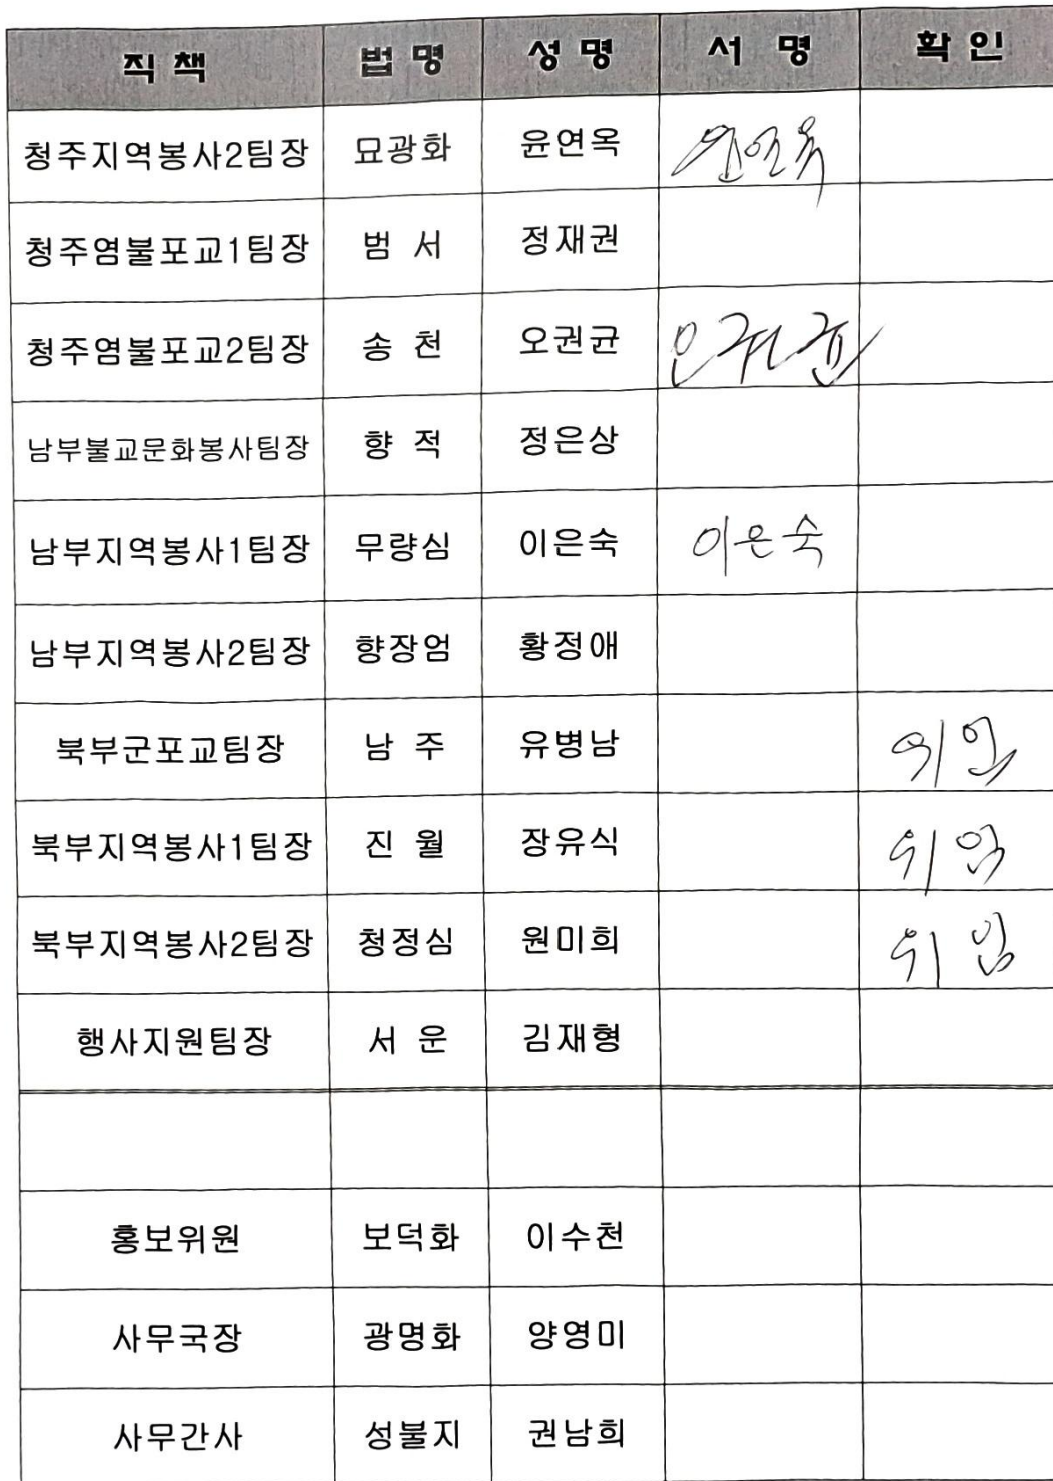 직 책 법 명 성 명 서 명 확 인
청주지역봉사2팀장 묘광화 윤연옥 윤연옥
청주염불포교1팀장 범 서 정재권
청주염불포교2팀장 송 천 오권균 오권균
남부불교문화봉사팀장 향 적 정은상
남부지역봉사1팀장 무량심 이은숙 이은숙
남부지역봉사2팀장 향장엄 황정애
북부군포교팀장 남 주 유병남 위임
북부지역봉사1팀장 진 월 장유식 위임
북부지역봉사2팀장 청정심 원미희 위임
행사지원팀장 서 운 김재형
홍보위원 보덕화 이수천
사무국장 광명화 양영미
사무간사 성불지 권남희